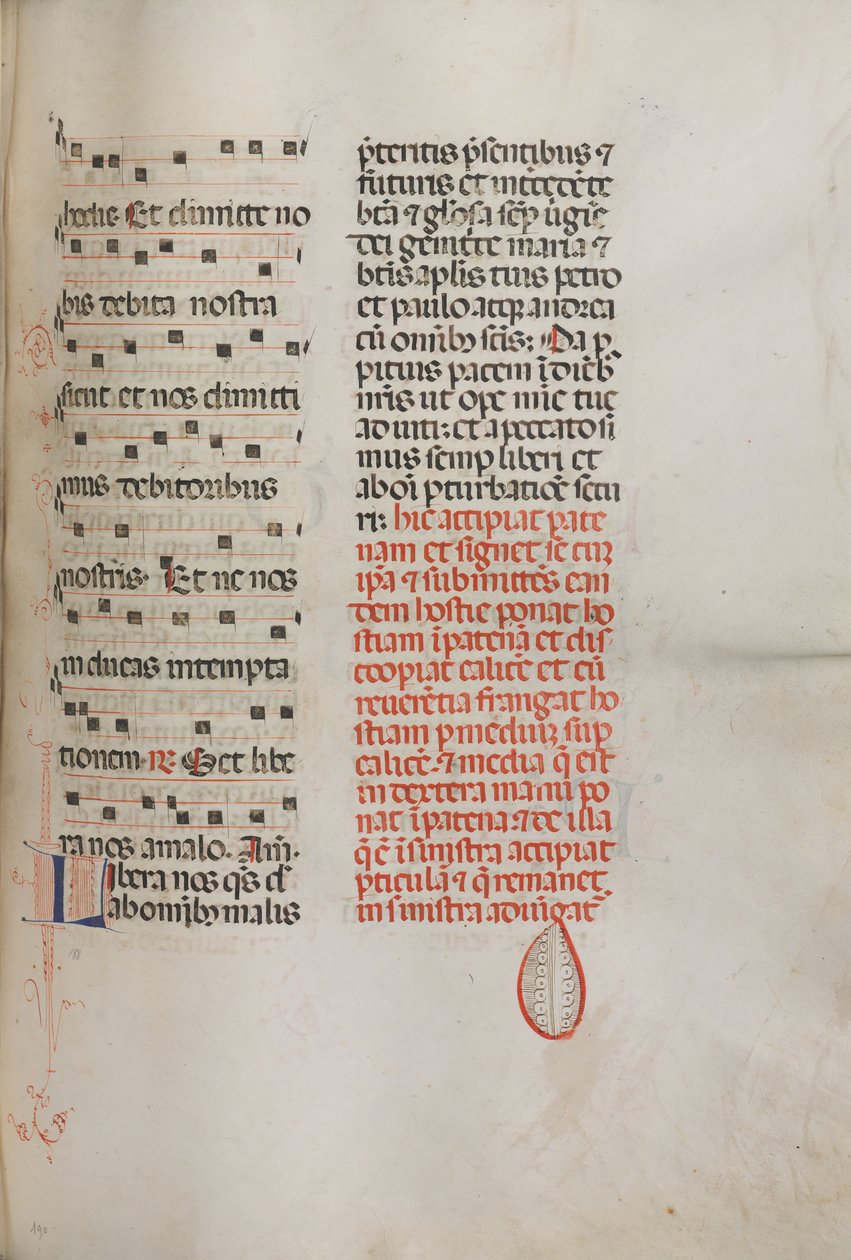 hodie. Et dimitte no
bis debita nostra
sicut et nos dimitti
mus debitoribus
nostris. Et ne nos
inducas intempta
tionem. R Set libe
ra nos amalo. Am̅.
Libera nos qs̅ d̅
abomībꝫ malis
188
p̅teritis p̅sentibus ⁊
futuris et īt̅cedēte
bt̅a ⁊ gl̅iosa sēp ūgīe
dei genit̅ce maria ⁊
bt̅is apl̅is tuis petro
et paulo atqꝫ andrea
cū omībꝫ sc̅is: Da p̱
pitius pacem īdiebꝫ
nr̅is ut ope mīe tue
adiuti: et apeccato si
mus semp liberi et
aboī ꝑturbatiōe secu
ri: hic accipiat pate
nam et signet se cuꝫ
ip̅a ⁊ submittēs ean
dem hostie ponat ho
stiam īpatenā et dis
coopiat calicē et cū
reuerētia frangat ho
stiam ꝑ mediuꝫ sup
calicē. ⁊ media q̄ est
in dextera manu po
nat īpatena ⁊ de illa
q̄ ē īsinistra accipiat
ꝑticulā ⁊ q̄ remanet
in sinistra adiūgat
190